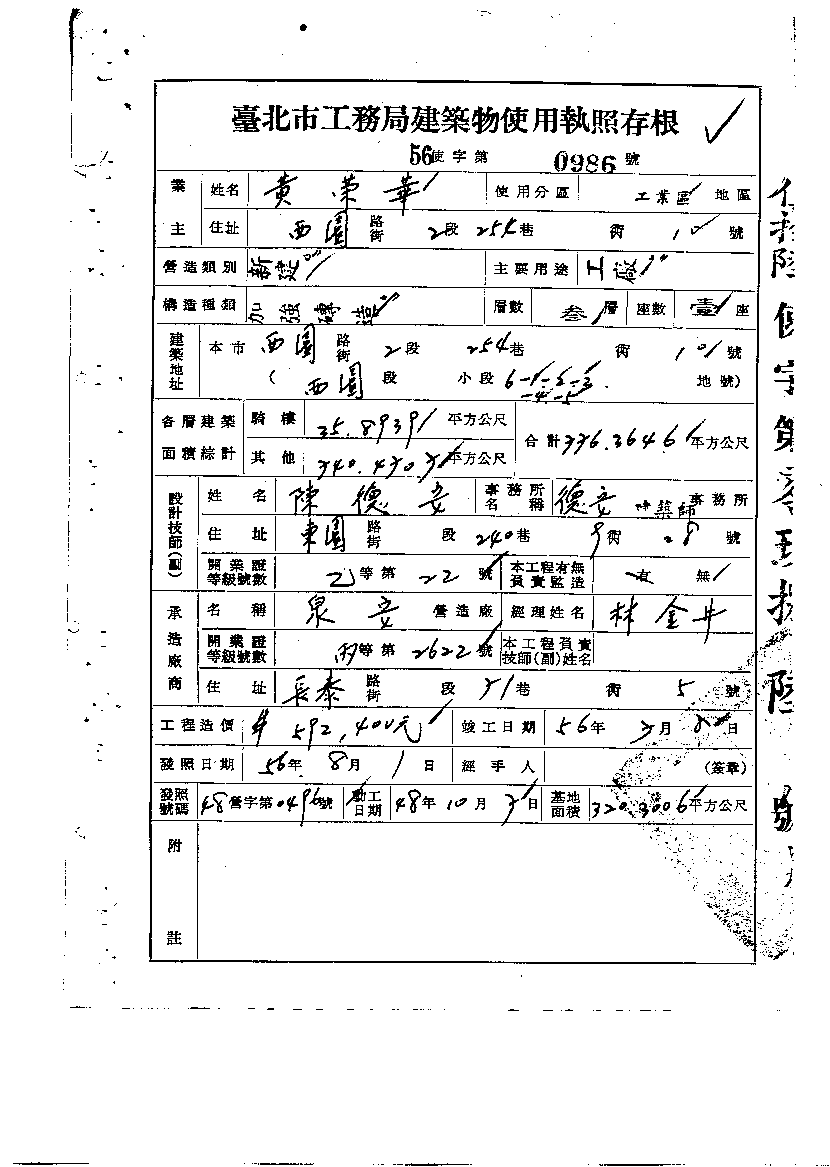 臺北市工務局建築物使用執照存根
56使字第 0986 號
業主 姓名 黃榮華 使用分區 工業區 地區
住址 西園 路街 2段 254巷 衖 10 號
營造類別 新建 主要用途 工廠
構造種類 加強磚造 層數 叁 層 座數 壹 座
建築地址 本市 西園 路街 2段 254巷 衖 10 號
( 西園 段 小段 6-1-2-3-4-5 地號)
各層建築面積綜計 騎樓 35.8939 平方公尺 合計 平方公尺
其他 平方公尺
設計技師(副) 姓名 陳德安 事務所名稱 德安 建築師 事務所
住址 東園 路街 段 240巷 9衖 28 號
開業證等級號數 乙等第 22 號 本工程有無負責監造 有 無
承造廠商 名稱 泉安 營造廠 經理姓名 林金井
開業證等級號數 丙等第 2622 號 本工程負責技師(副)姓名
住址 長泰 路街 段 51巷 衖 5 號
工程造價 592,400元 竣工日期 56年 月 日
發照日期 56年 8月 1日 經手人 (簽章)
發照號碼 48營字第0496號 動工日期 48年10月 日 基地面積 320.3006平方公尺
附註